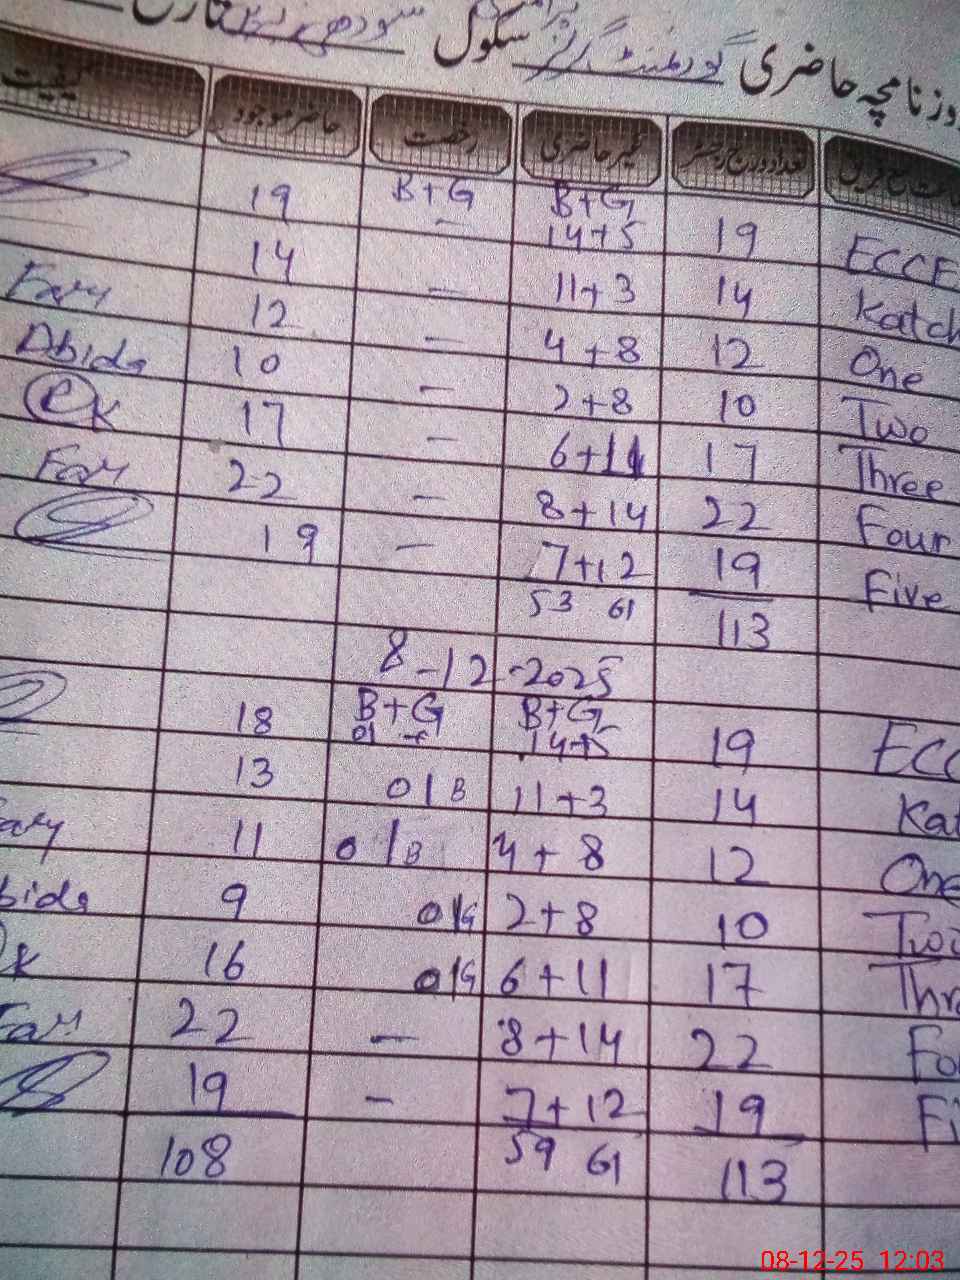 روزنامچہ حاضری گورنمنٹ گرلز پرائمری سکول
کیفیت حاضر موجود رخصت غیر حاضری تعداد درج رجسٹر
19 B+G B+G 19 ECCE
- 14+5
14 - 11+3 14 Katch
12 - 4+8 12 One
10 - 2+8 10 Two
OK 17 - 6+11 17 Three
22 - 8+14 22 Four
19 - 7+12 19 Five
53 61 113
8-12-2025
18 B+G B+G 19 ECC
01 - 14+5
13 01B 11+3 14 Kat
11 01B 4+8 12 One
9 01G 2+8 10 Two
16 01G 6+11 17 Thre
22 - 8+14 22 Fo
19 - 7+12 19 Fi
108 59 61 113
08-12-25 12:03